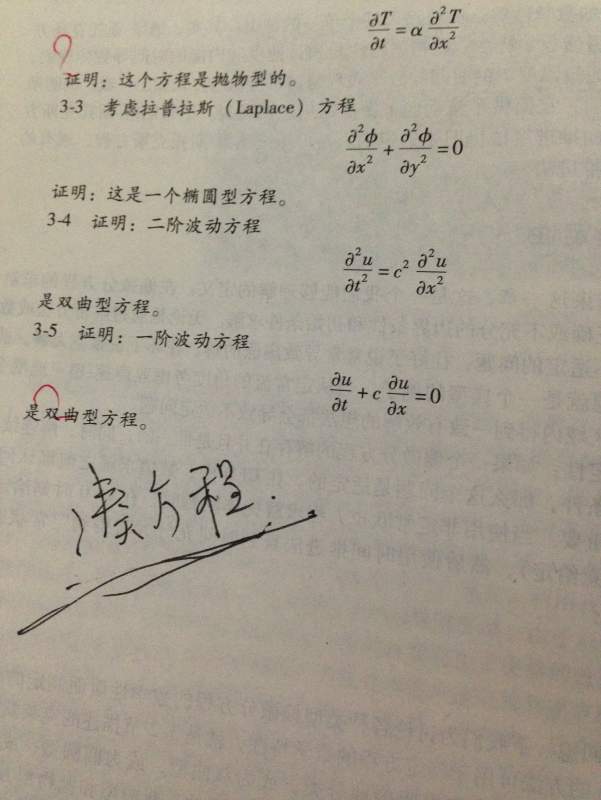 ∂T/∂t = α ∂²T/∂x²
证明：这个方程是抛物型的。
3-3 考虑拉普拉斯（Laplace）方程
∂²φ/∂x² + ∂²φ/∂y² = 0
证明：这是一个椭圆型方程。
3-4 证明：二阶波动方程
∂²u/∂t² = c² ∂²u/∂x²
是双曲型方程。
3-5 证明：一阶波动方程
∂u/∂t + c ∂u/∂x = 0
是双曲型方程。
凑方程.